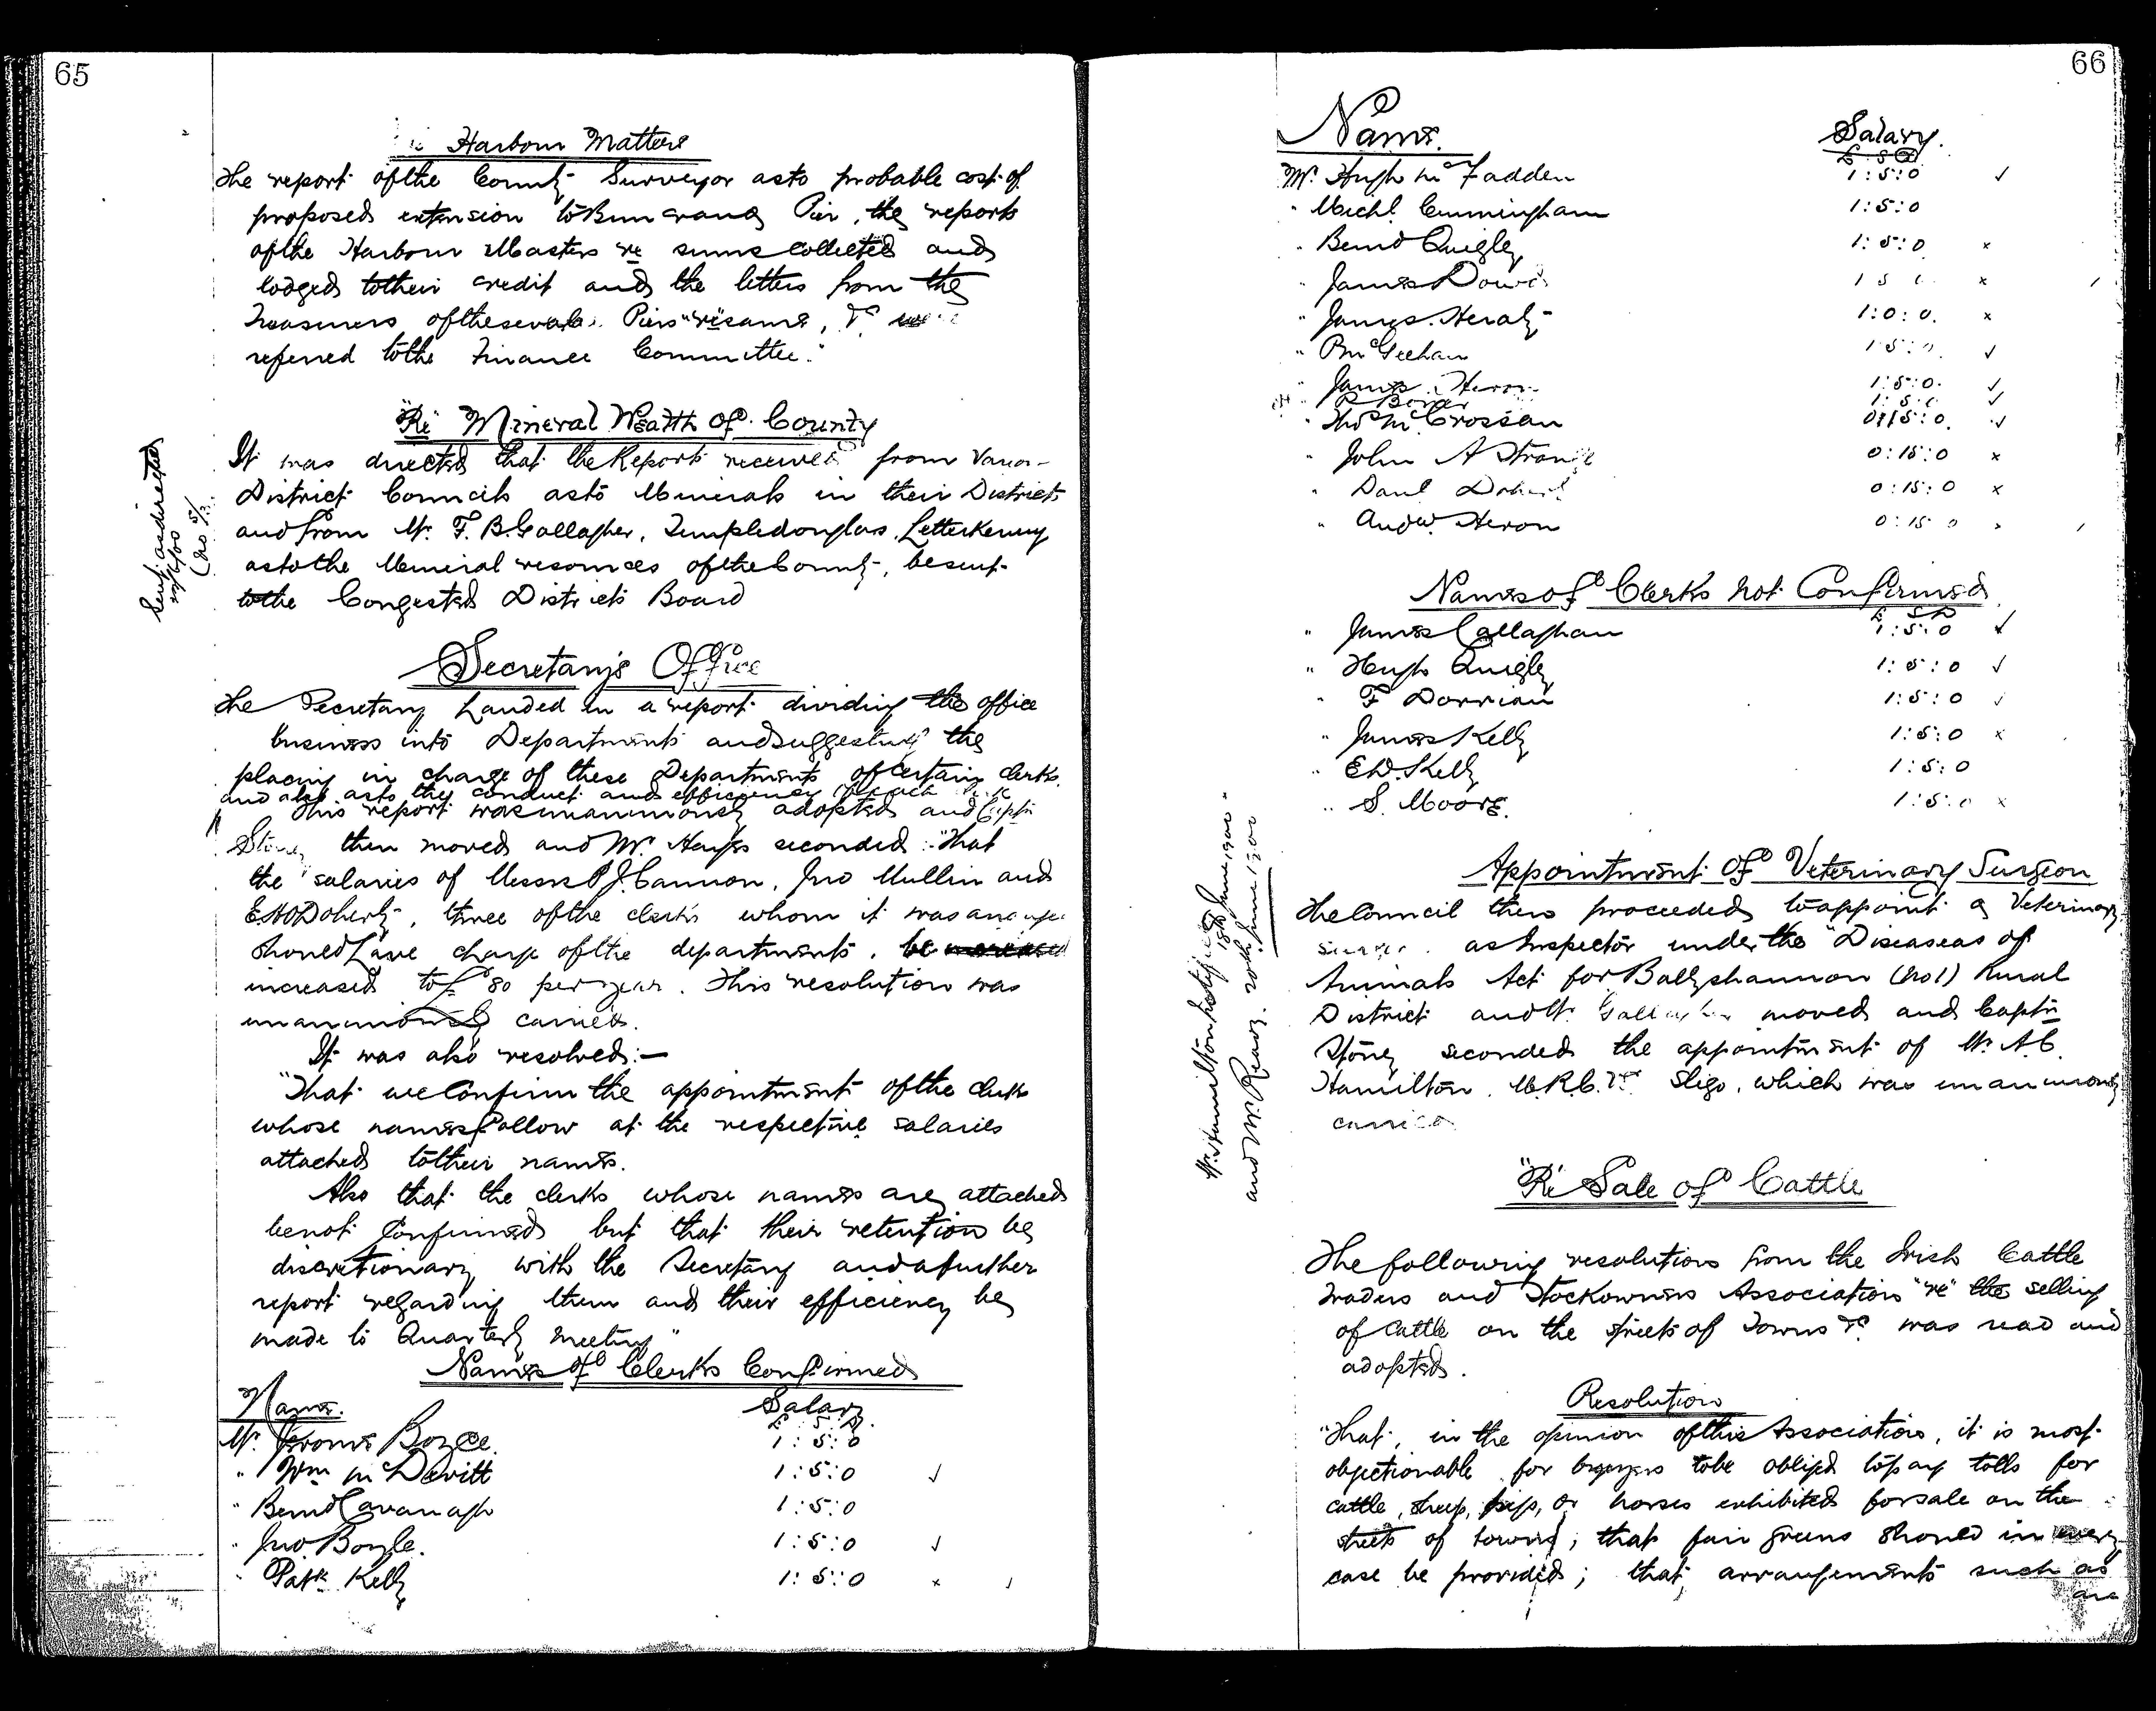 65
Harbour Matters
The report of the County Surveyor as to probable cost of
proposed extension to Buncrana Pier, the reports
of the Harbour Masters re sums collected and
lodged to their credit and the letters from the
Treasurers of the several Piers "re" same, &c were
referred to the Finance Committee."
"Re" Mineral Wealth of County
It was directed that the Reports received from
District Councils as to Minerals in their Districts
and from Mr. F. B. Gallagher, Templedouglas, Letterkenny
as to the Mineral resources of the County, be sent
to the Congested Districts Board
Sent as directed
Secretary's Office
The Secretary handed in a report dividing the office
business into Departments and suggesting the
placing in charge of these Departments of certain clerks.
and also as to the conduct and efficiency of each
This report was unanimously adopted and Captn
Stoney then moved and Mr. Hayes seconded :- "That
the salaries of Messrs P J. Cannon, Jno Mullin and
E. H O'Doherty, three of the clerks whom it was
should have charge of the departments, be
increased to £80 per year. This resolution was
unanimously carried.
It was also resolved:—
"That we Confirm the appointment of the clerks
whose names follow at the respective salaries
attached to their names.
Also that the clerks whose names are attached
be not Confirmed but that their retention be
discretionary with the Secretary and a further
report regarding them and their efficiency be
made to Quarterly Meeting"
Names of Clerks Confirmed
Name. Salary
£ S. D.
Mr. Jerome Boyce. 1:5:0
" Wm McDevitt 1:5:0 ✓
" Bernd Cavanagh 1:5:0
" Jno Boyle. 1:5:0 ✓
" Patk Kelly 1:5:0 x
66
Name. Salary.
£ S D
Mr. Hugh McFadden 1:5:0 ✓
" Michl. Cunningham 1:5:0
" Bernd Quigley 1:5:0 x
" James x
" James Heraty 1:0:0. x
" P McGeehan 1:5:0. ✓
" James Heron 1:5:0. ✓
P Boner 1:5:0 ✓
" Thos McCrossan 0:15:0. ✓
" John A Strange 0:15:0 x
" Danl Doherty 0:15:0 x
" Andw. Heron 0:15:0
Names of Clerks not Confirmed
£ S D
" James Callaghan 1:5:0 ✓
" Hugh Quigley 1:5:0 ✓
" F Dorrian 1:5:0 ✓
" James Kelly 1:5:0 x
" E W. Kelly 1:5:0
" S. Moore. 1:5:0 x
Appointment of Veterinary Surgeon
The Council then proceeded to appoint a Veterinary
Surgeon as Inspector under the "Diseases of
Animals Act for Ballyshannon (No 1) Rural
District and Mr. Gallagher moved and Captn
Stoney seconded the appointment of Mr. A. C.
Hamilton, M.R.C.V.S. Sligo, which was unanimously
carried
Mr. Hamilton notified 18th June 1900
and Mr. 20th June 1900
"Re" Sale of Cattle
The following resolution from the Irish Cattle
Traders and Stockowners Association "re" the selling
of cattle on the streets of Towns &c was read and
adopted.
Resolution
"That, in the opinion of this Association, it is most
objectionable for buyers to be obliged to pay tolls for
cattle, sheep, pigs, or horses exhibited for sale on the
streets of towns; that fair greens should in every
case be provided; that arrangements such as
are